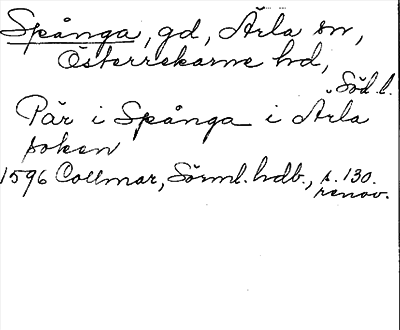 Spånga, gd, Ärla sn,
Österrekarne hd,
Söd. l.
Pär i Spånga i Arla
soken
1596 Collmar, Sörml. hdb., s. 130.
renov.